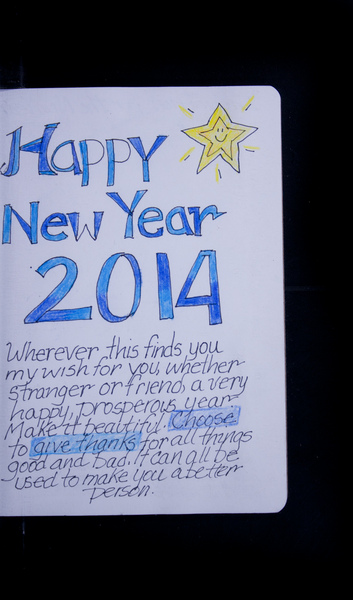 Happy
New Year
2014
Wherever this finds you
my wish for you, whether
stranger or friend, a very
happy, prosperous year
Make it beautiful. Choose
to give thanks for all things
good and bad. It can all be
used to make you a better
person.